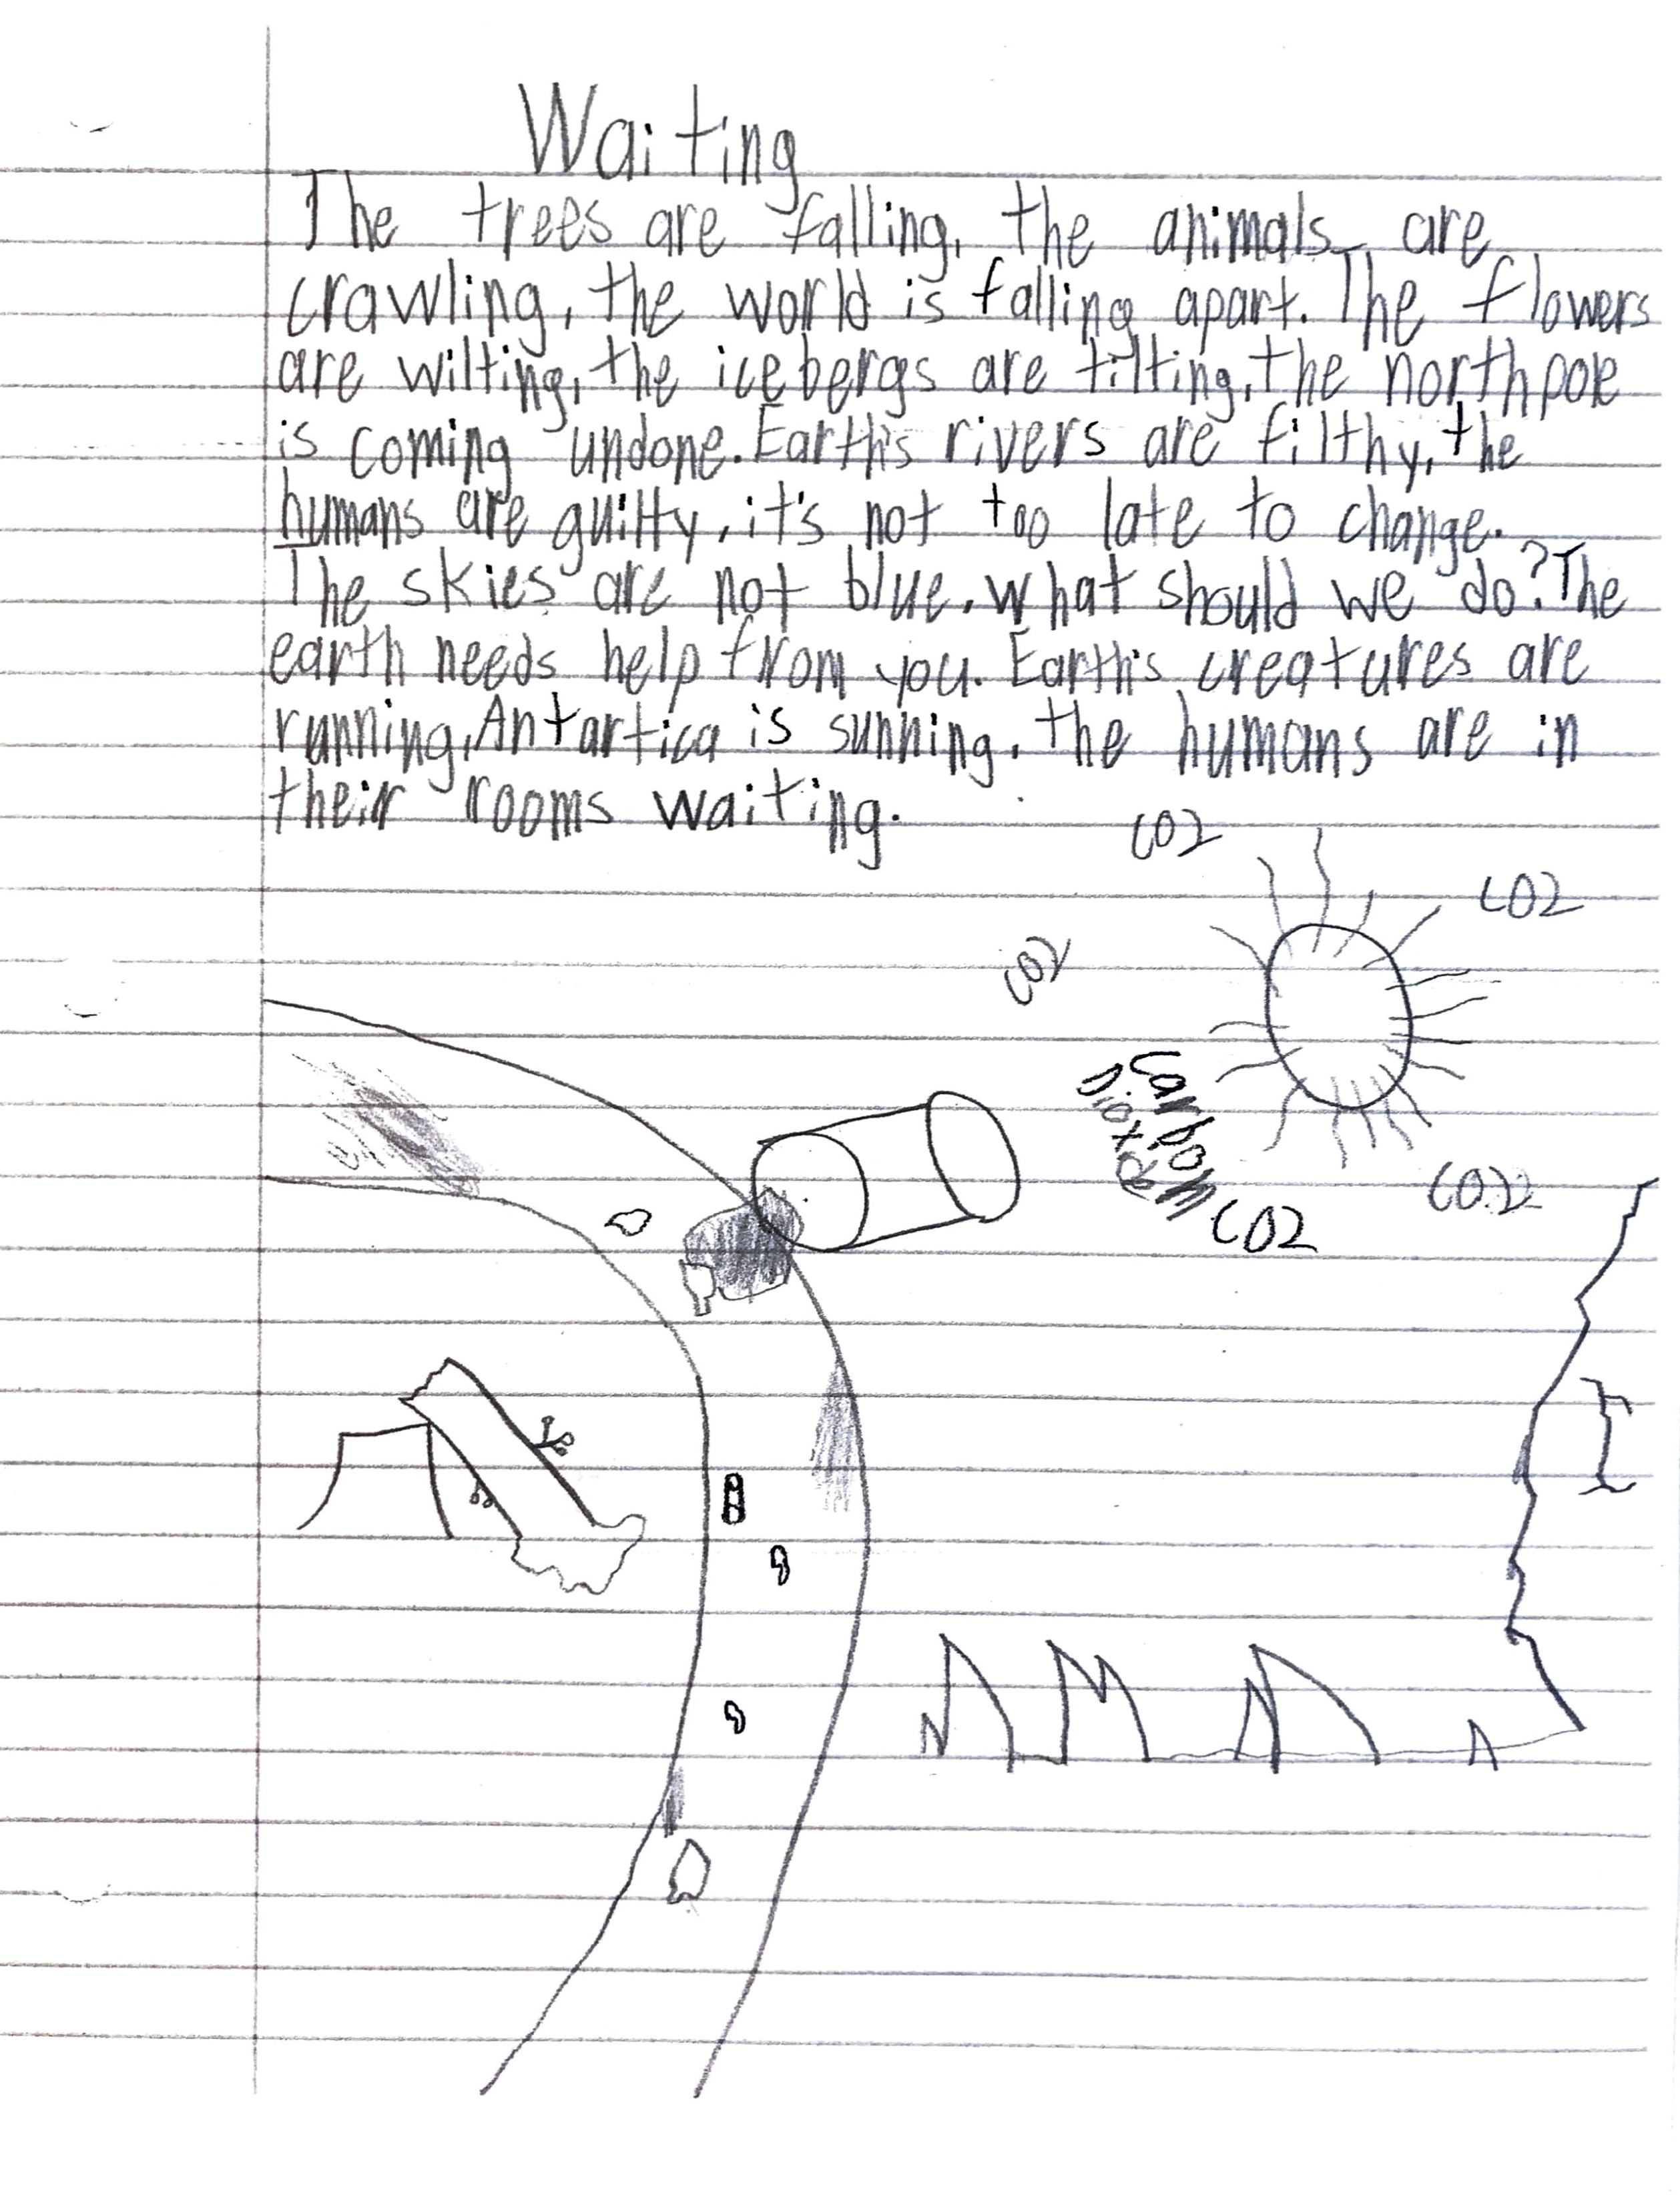 Waiting
The trees are falling, the animals are
crawling, the world is falling apart. The flowers
are wilting, the icebergs are tilting, the northpole
is coming undone. Earth's rivers are filthy, the
humans are guilty, it's not too late to change.
The skies are not blue. What should we do? The
earth needs help from you. Earth's creatures are
running, Antartica is sunning, the humans are in
their rooms waiting.
CO2
CO2
CO2
Carbon
Dioxide
CO2
CO2